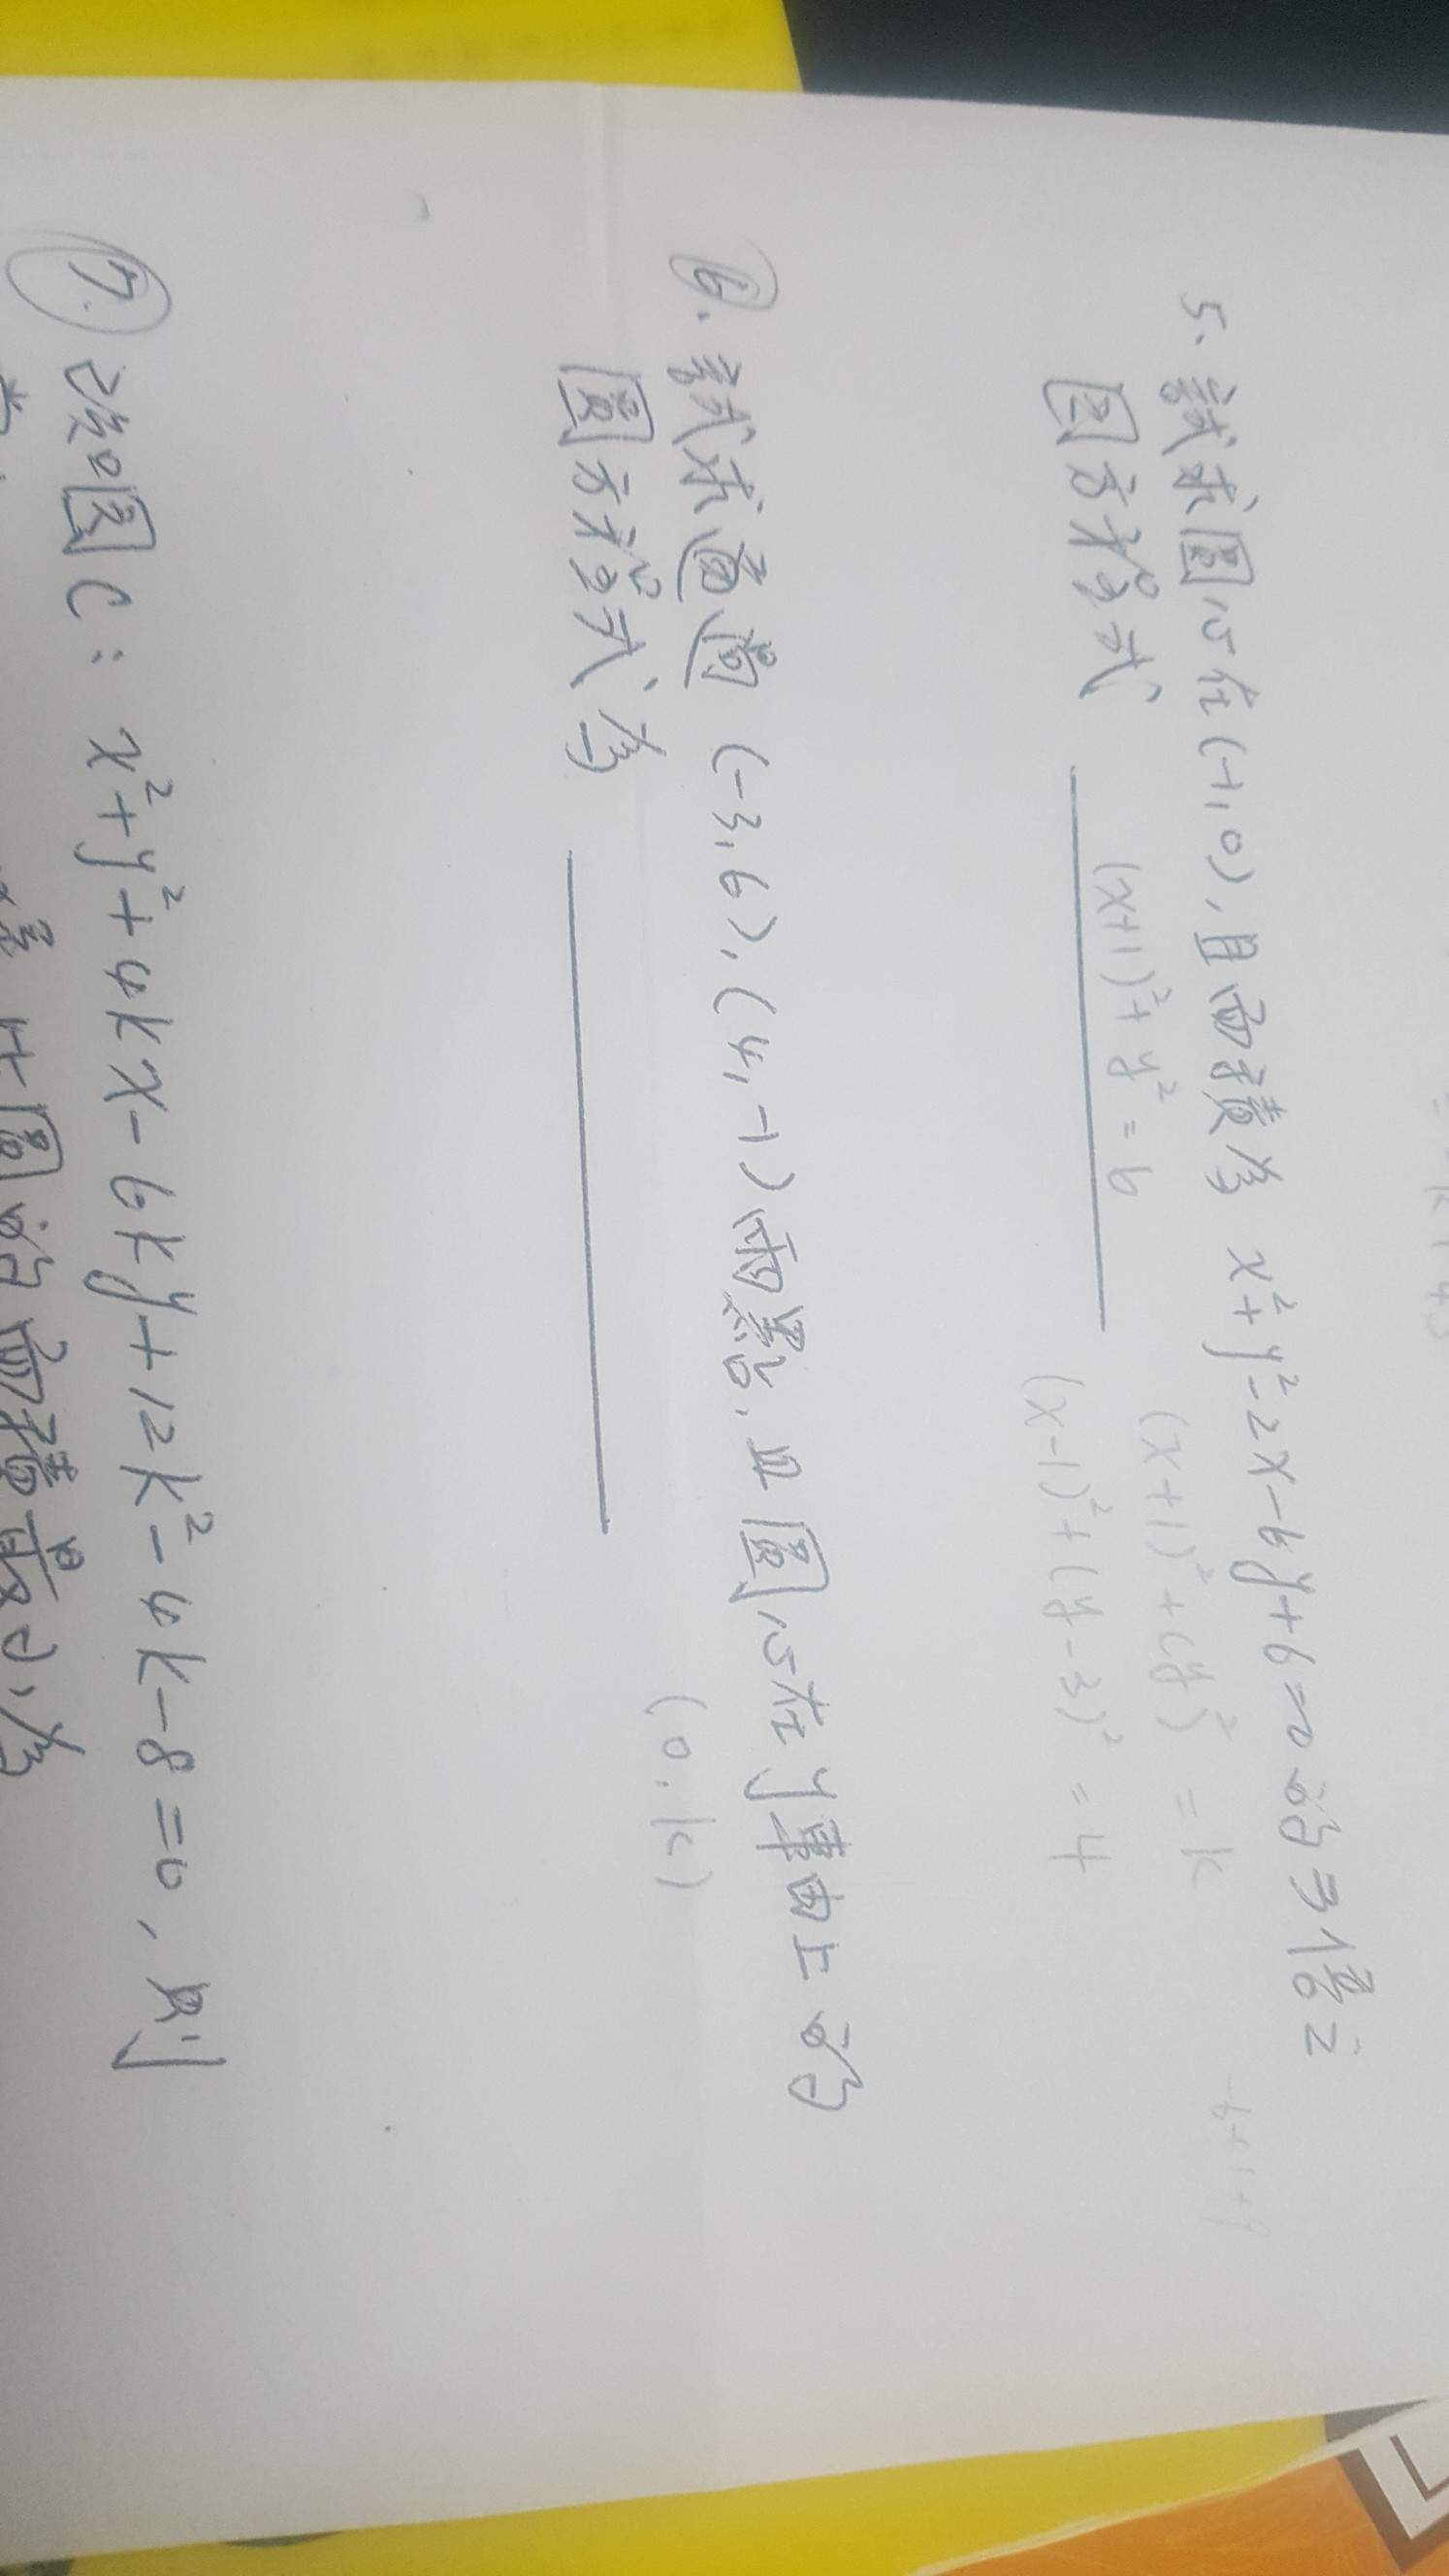 5. 試求圓心在(-1,0),且面積為 x²+y²-2x-6y+6=0 的3倍之
圆方程式 (x+1)²+y²=6
(x+1)²+(y)²=k
(x-1)²+(y-3)²=4
-6+1+9
6. 試求通過 (-3,6),(4,-1)兩點,且圓心在y軸上的
圓方程式為
(0,k)
7. 已知圓C: x²+y²+4kx-6ky+12k²-4k-8=0,則
圓的面積最小為